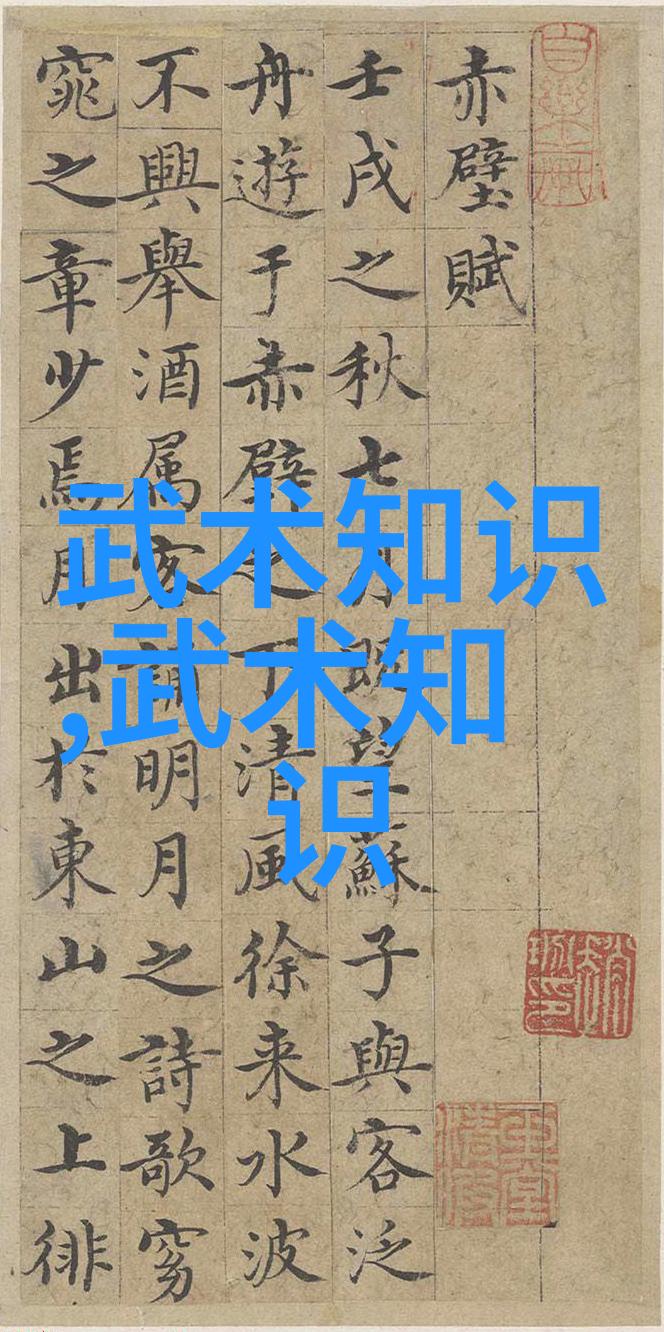 赤壁賦
壬戌之秋七月既望蘇子與客泛
舟遊于赤壁之下清風徐来水波
不興舉酒属客誦明月之詩歌窈
窕之章少焉月出於東山之上徘
武术知识
,武术知
识